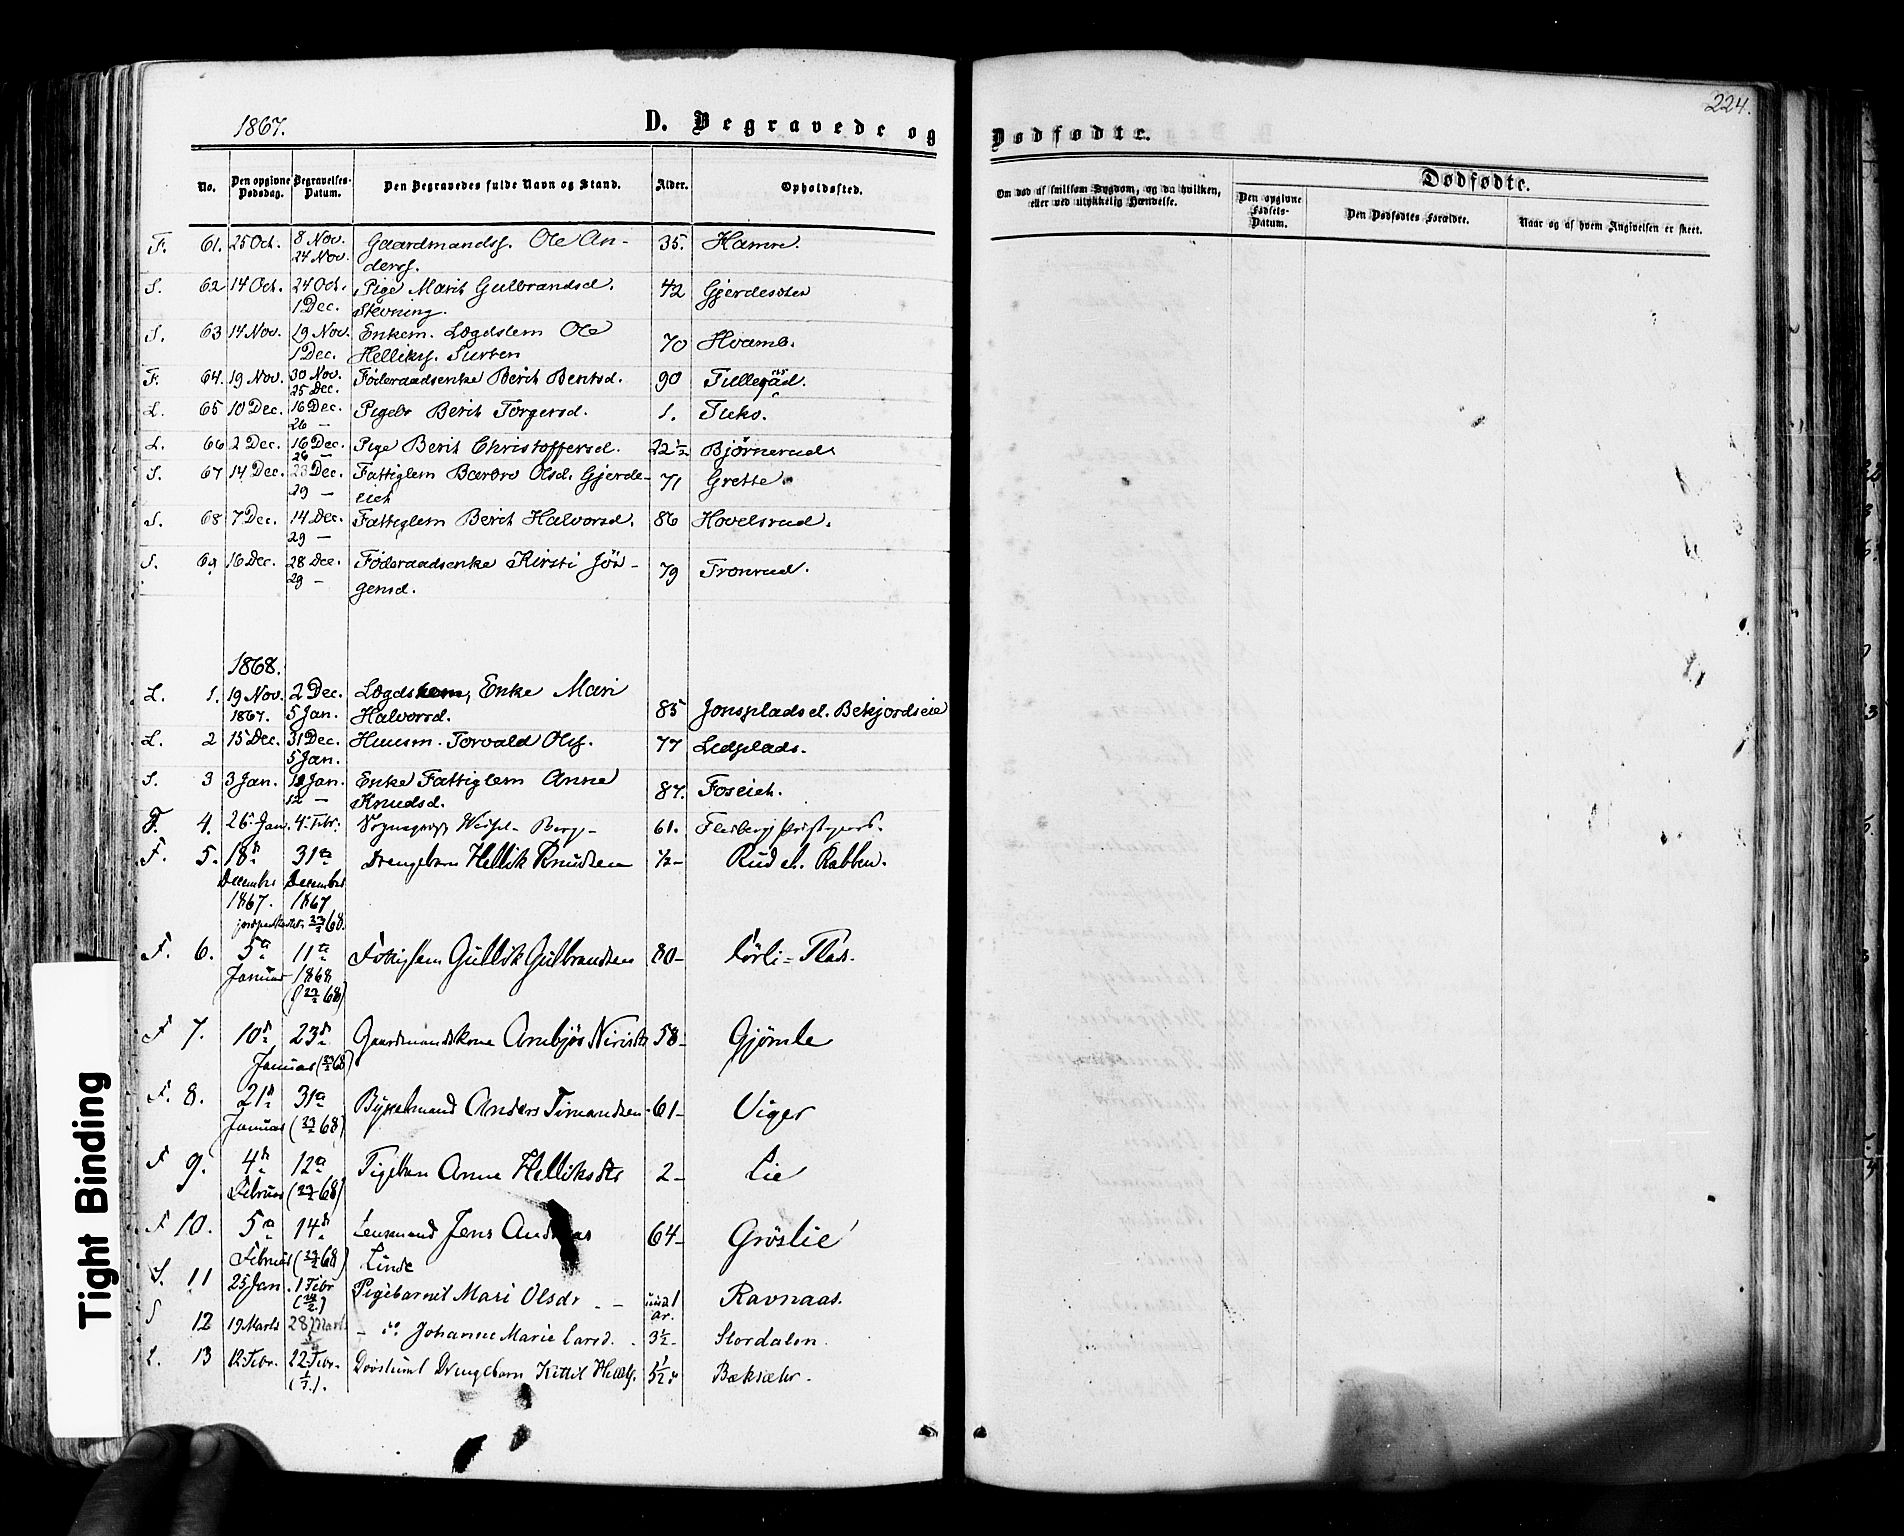 224.
1867.
D. Begravede og Dødfødte.
No. Den opgivne Dødsdag. Begravelses-Datum. Den Begravedes fulde Navn og Stand. Alder. Opholdssted.
Om død af smitsom Sygdom, og da hvilken, eller ved ulykkelig Hændelse.
Dødfødte.
Den opgivne Fødsels-Datum. Den Dødfødtes Forældre. Naar og af hvem Angivelsen er skeet.
F. 61. 25 Oct. 8 Nov. Gaardmandsf. Ole An- 35. Hamre.
24 Nov. dersf.
S. 62 14 Oct. 24 Oct. Pige Marit Gulbrandsd. 42 Gjerdeseter
1 Dec. Stevning.
S. 63 14 Nov. 19 Nov. Enkem. Lægdslem Ole 70 Hvamb.
1 Dec. Helliksf. Surten
F. 64. 19 Nov. 30 Nov. Føderaadsenke Berit Bentsd. 90
25 Dec.
L. 65 10 Dec. 16 Dec. Pigebr Berit Torgersd. 1. Tuko.
26 —
L. 66 2 Dec. 16 Dec. Pige Berit Christoffersd. 22½ Bjørnerud.
26 —
S. 67 14 Dec. 23 Dec. Fattiglem Barbro Olsd. Gjerde- 71 Grette.
29 — eiet
S. 68 7 Dec. 14 Dec. Fattiglem Berit Halvorsd. 86 Hovelsrud.
29 —
S. 69 16 Dec. 28 Dec. Føderaadsenke Kirsti Jør- 79 Tronrud.
29 — gensd.
1868.
L. 1. 19 Nov. 2 Dec. Lægdslem, Enke Mari
1867. 5 Jan. Halvorsd. 85 Jonsplads el. Bekjordseie
L. 2 15 Dec. 31 Dec. Huusm. Torvald Olsf. 77 Ledsplads.
5 Jan.
S. 3 3 Jan. 12 Jan. Enke Fattiglem Anne 87. Foseiet.
12 — Knudsd.
F. 4. 26 Jan. 4 Febr. Sogneprest Berg 61. Flesberg
F. 5. 18de 31te Drengebarn Hellik Knudsen ½ Rud el. Rabben.
December December
1867. 1867
jordpaakastet 23/2 68.
F. 6. 5te 11te Fattiglem Gullik Gulbrandsen 80 Lørli-Plads.
Januar 1868
(23/2 68)
F 7. 10de 23de Gaardmandskone Ambjør Nirisdtr 58 Gjømle
Januar (23/2 68)
F. 8. 21de 31te Bygselmand Anders Timandsen 61 Viger
Januar (23/2 68)
F 9. 4de 12te Pigebarn Anne Helliksdtr 2 Lie
Februar (23/2 68)
F 10. 5te 14de Lensmand Jens Andreas 64 Gröslie
Februar (23/2 68) Linde
S. 11 25 Jan. 1 Febr Pigebarnet Mari Olsdr 1 Ravnaas.
aar.
S 12 19 Marts 28 Marts — do Johanne Marie Larsd. 3½ Stordalen.
L. 13 12 Febr. 22 Febr. Døvstumt Drengebarn Kittil Hellksf. 5½ Bæksæter.
Tight Binding